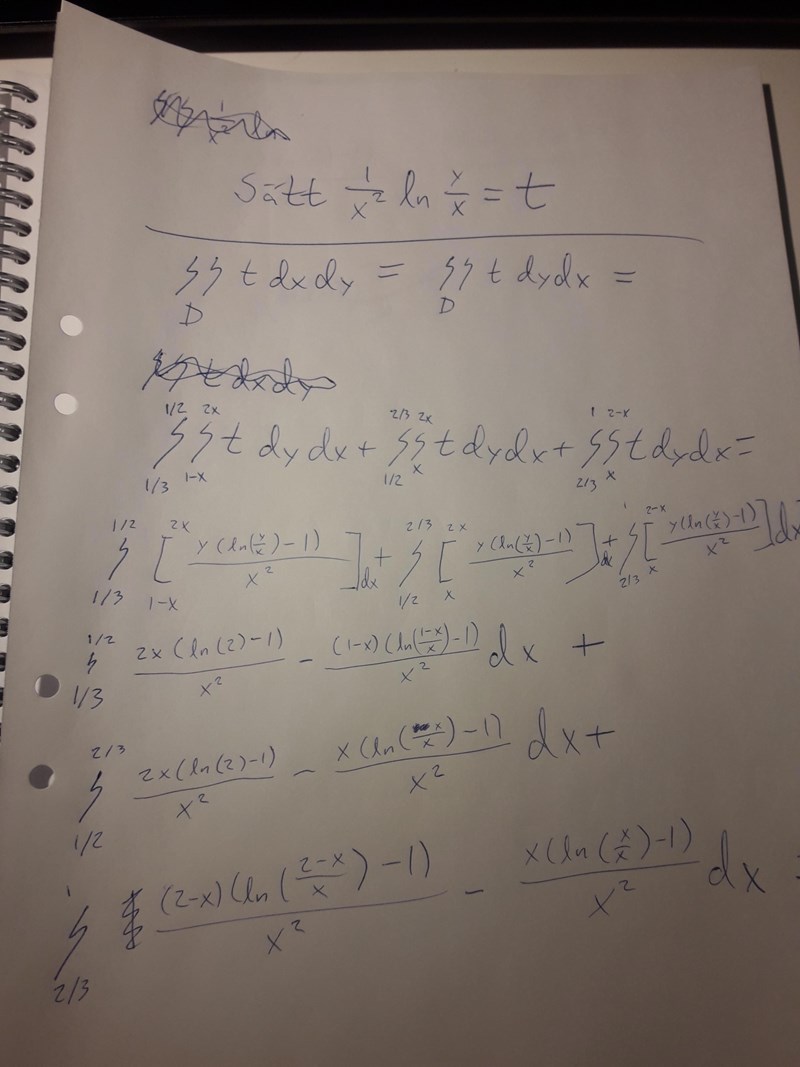 Sätt 1/x² ln y/x = t
∬_D t dxdy = ∬_D t dydx =
∫_{1/3}^{1/2} ∫_{1-x}^{2x} t dydx + ∫_{1/2}^{2/3} ∫_{x}^{2x} t dydx + ∫_{2/3}^{1} ∫_{x}^{2-x} t dydx =
∫_{1/3}^{1/2} [ y(ln(y/x)-1)/x² ]_{1-x}^{2x} dx + ∫_{1/2}^{2/3} [ y(ln(y/x)-1)/x² ]_{x}^{2x} dx + ∫_{2/3}^{1} [ y(ln(y/x)-1)/x² ]_{x}^{2-x} dx
∫_{1/3}^{1/2} 2x(ln(2)-1)/x² - (1-x)(ln((1-x)/x)-1)/x² dx +
∫_{1/2}^{2/3} 2x(ln(2)-1)/x² - x(ln(x/x)-1)/x² dx +
∫_{2/3}^{1} (2-x)(ln((2-x)/x)-1)/x² - x(ln(x/x)-1)/x² dx =